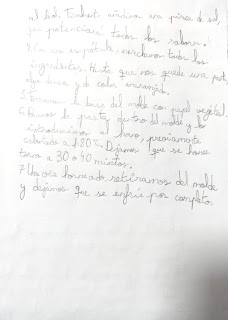 al bol. También añadimos una pizca de sal,
para potenciar todos los sabores.
4 Con una espátula, mezclamos todos los
ingredientes. Hasta que nos quede una pasta
algo densa y de color anaranjado.
5. Forramos la base del molde con papel vegetal.
6. Ponemos la pasta dentro del molde y lo
introducimos al horno, previamente
calentado a 180°C. Dejamos que se hornee
30 o 40 minutos.
7 Una vez horneado, retiramos del molde
y dejamos que se enfríe por completo.